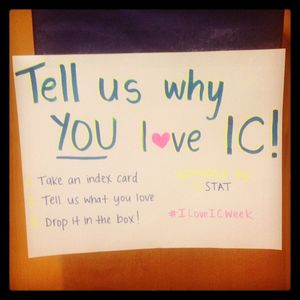 Tell us why
YOU l♥ve IC!
Take an index card
Tell us what you love
Drop it in the box!
STAT
#ILoveICWeek